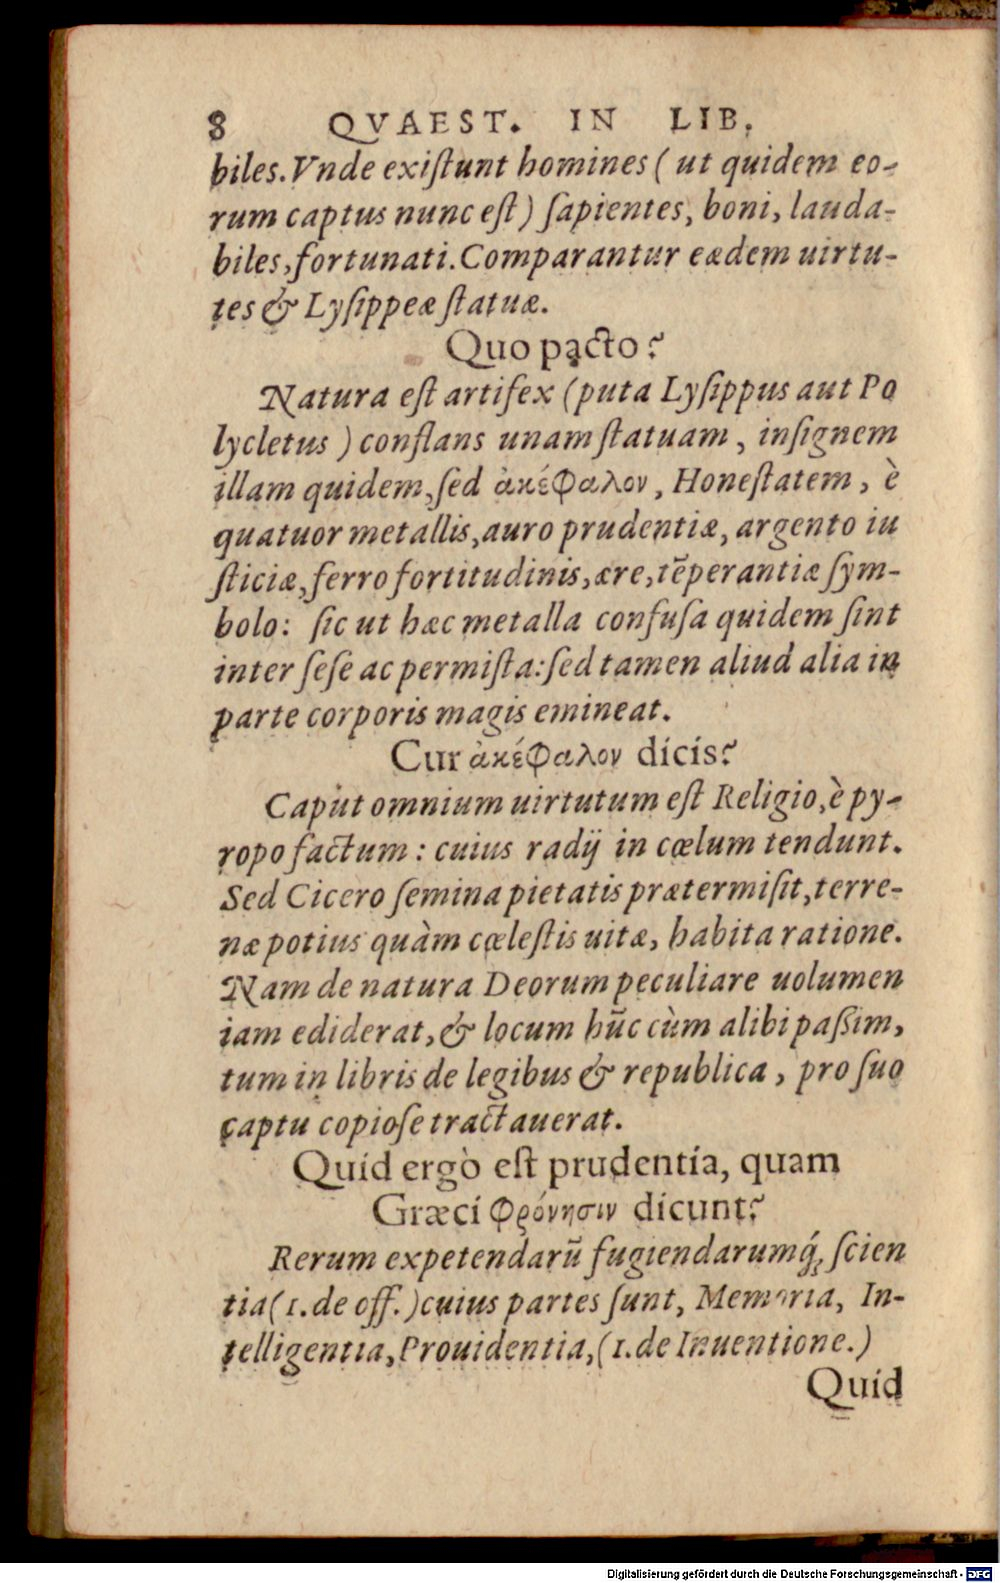 8 QVAEST. IN LIB.
biles. Vnde exiſtunt homines ( ut quidem eo-
rum captus nunc eſt ) ſapientes, boni, lauda-
biles, fortunati. Comparantur eædem uirtu-
tes & Lyſippeæ ſtatuæ.
Quo pacto?
Natura eſt artifex (puta Lyſippus aut Po
lycletus ) conflans unam ſtatuam, inſignem
illam quidem, ſed ἀκέφαλον, Honeſtatem, è
quatuor metallis, auro prudentiæ, argento iu
ſticiæ, ferro fortitudinis, ære, tēperantiæ ſym-
bolo: ſic ut hæc metalla confuſa quidem ſint
inter ſeſe ac permiſta: ſed tamen aliud alia in
parte corporis magis emineat.
Cur ἀκέφαλον dicis?
Caput omnium uirtutum eſt Religio, è py-
ropo factum: cuius radij in cœlum tendunt.
Sed Cicero ſemina pietatis prætermiſit, terre-
næ potius quàm cœleſtis uitæ, habita ratione.
Nam de natura Deorum peculiare uolumen
iam ediderat, & locum hūc cùm alibi paßim,
tum in libris de legibus & republica, pro ſuo
captu copioſe tractauerat.
Quid ergò eſt prudentia, quam
Græci φρόνησιν dicunt?
Rerum expetendarū fugiendarumq́; ſcien
tia (1. de off.) cuius partes ſunt, Memoria, In-
telligentia, Prouidentia, (1. de Inuentione.)
Quid
Digitalisierung gefördert durch die Deutsche Forschungsgemeinschaft - DFG